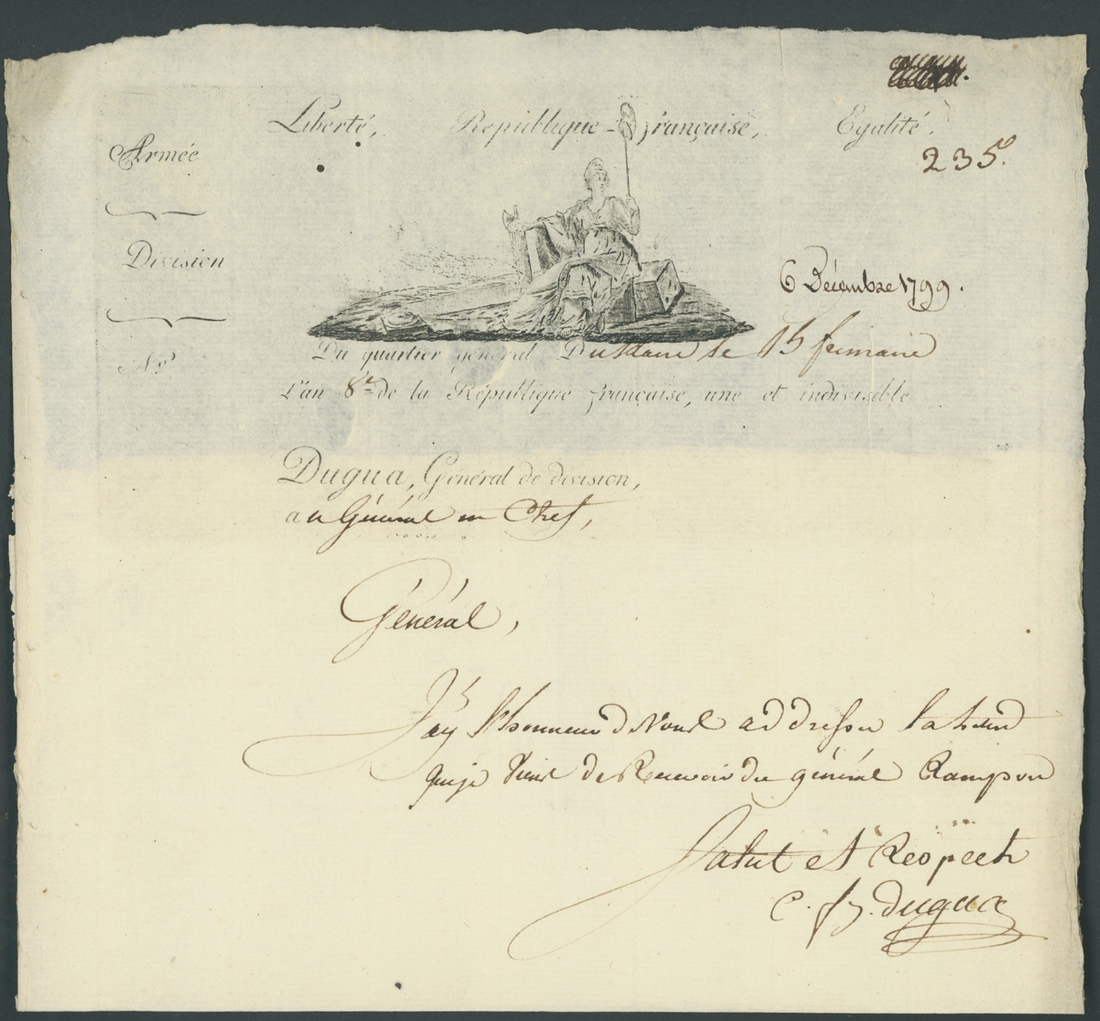 Liberté, République Française, Egalité.
235.
Armée
Division
6 Décembre 1799.
N.º
Du quartier général Du Kaire le 15 frimaire
L'an 8.e de la République française, une et indivisible
Dugua, Général de division,
au Général en Chef,
Général,
J'ay l'honneur de vous addresser la
que je viens de Recevoir du général Rampon
Salut et Respect
C. f. j. dugua